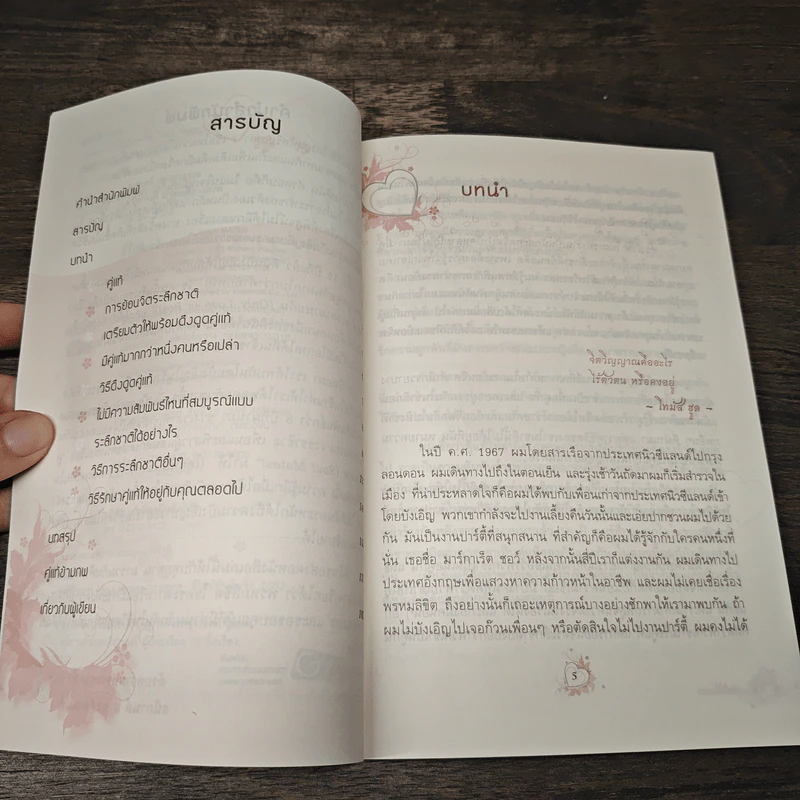 สารบัญ
คำนำสำนักพิมพ์
สารบัญ
บทนำ
คู่แท้
การย้อนจิตระลึกชาติ
เตรียมตัวให้พร้อมดึงดูดคู่แท้
มีคู่แท้มากกว่าหนึ่งคนหรือเปล่า
วิธีดึงดูดคู่แท้
ไม่มีความสัมพันธ์ไหนที่สมบูรณ์แบบ
ระลึกชาติได้อย่างไร
วิธีการระลึกชาติอื่นๆ
วิธีรักษาคู่แท้ให้อยู่กับคุณตลอดไป
บทสรุป
คู่แท้ข้ามภพ
เกี่ยวกับผู้เขียน
บทนำ
จิตวิญญาณคืออะไร
ไร้ตัวตน หรือคงอยู่
- โทมัส ฮูด -
ในปี ค.ศ. 1967 ผมโดยสารเรือจากประเทศนิวซีแลนด์ไปกรุง
ลอนดอน ผมเดินทางไปถึงในตอนเย็น และรุ่งเช้าวันถัดมาผมก็เริ่มสำรวจใน
เมือง ที่น่าประหลาดใจก็คือผมได้พบกับเพื่อนเก่าจากประเทศนิวซีแลนด์เข้า
โดยบังเอิญ พวกเขากำลังจะไปงานเลี้ยงคืนวันนั้นและเอ่ยปากชวนผมไปด้วย
กัน มันเป็นงานปาร์ตี้ที่สนุกสนาน ที่สำคัญก็คือผมได้รู้จักกับใครคนหนึ่งที่
นั่น เธอชื่อ มาร์กาเร็ต ชอว์ หลังจากนั้นสี่ปีเราก็แต่งงานกัน ผมเดินทางไป
ประเทศอังกฤษเพื่อแสวงหาความก้าวหน้าในอาชีพ และผมไม่เคยเชื่อเรื่อง
พรหมลิขิต ถึงอย่างนั้นก็เถอะเหตุการณ์บางอย่างชักพาให้เรามาพบกัน ถ้า
ผมไม่บังเอิญไปเจอก๊วนเพื่อนๆ หรือตัดสินใจไม่ไปงานปาร์ตี้ ผมคงไม่ได้
5